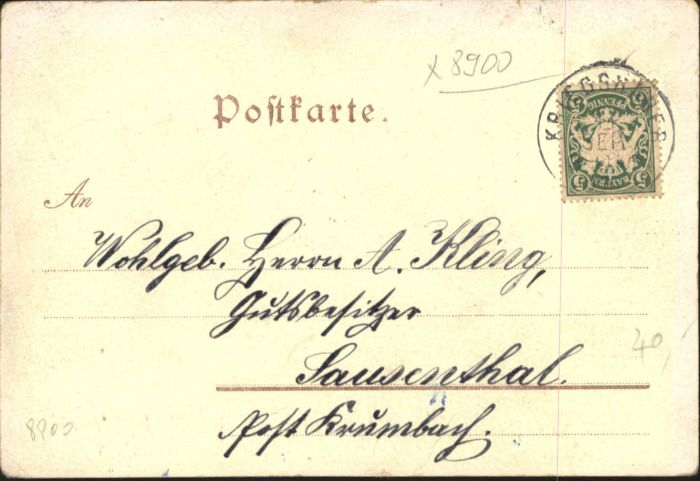 x 8900
Postkarte.
KRIEGSH BER
5 PFENNIG 5
5 BAYERN 5
An
Wohlgeb. Herrn A. Kling,
Gutsbesitzer
Sausenthal.
Post Krumbach.
40,
8900